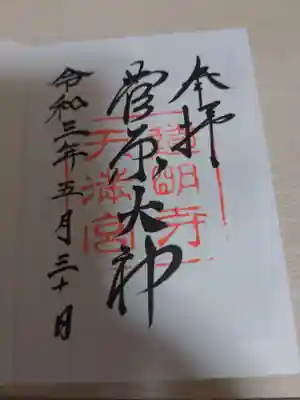 奉拝
菅原大神
道明寺
天満宮
令和三年五月三十日